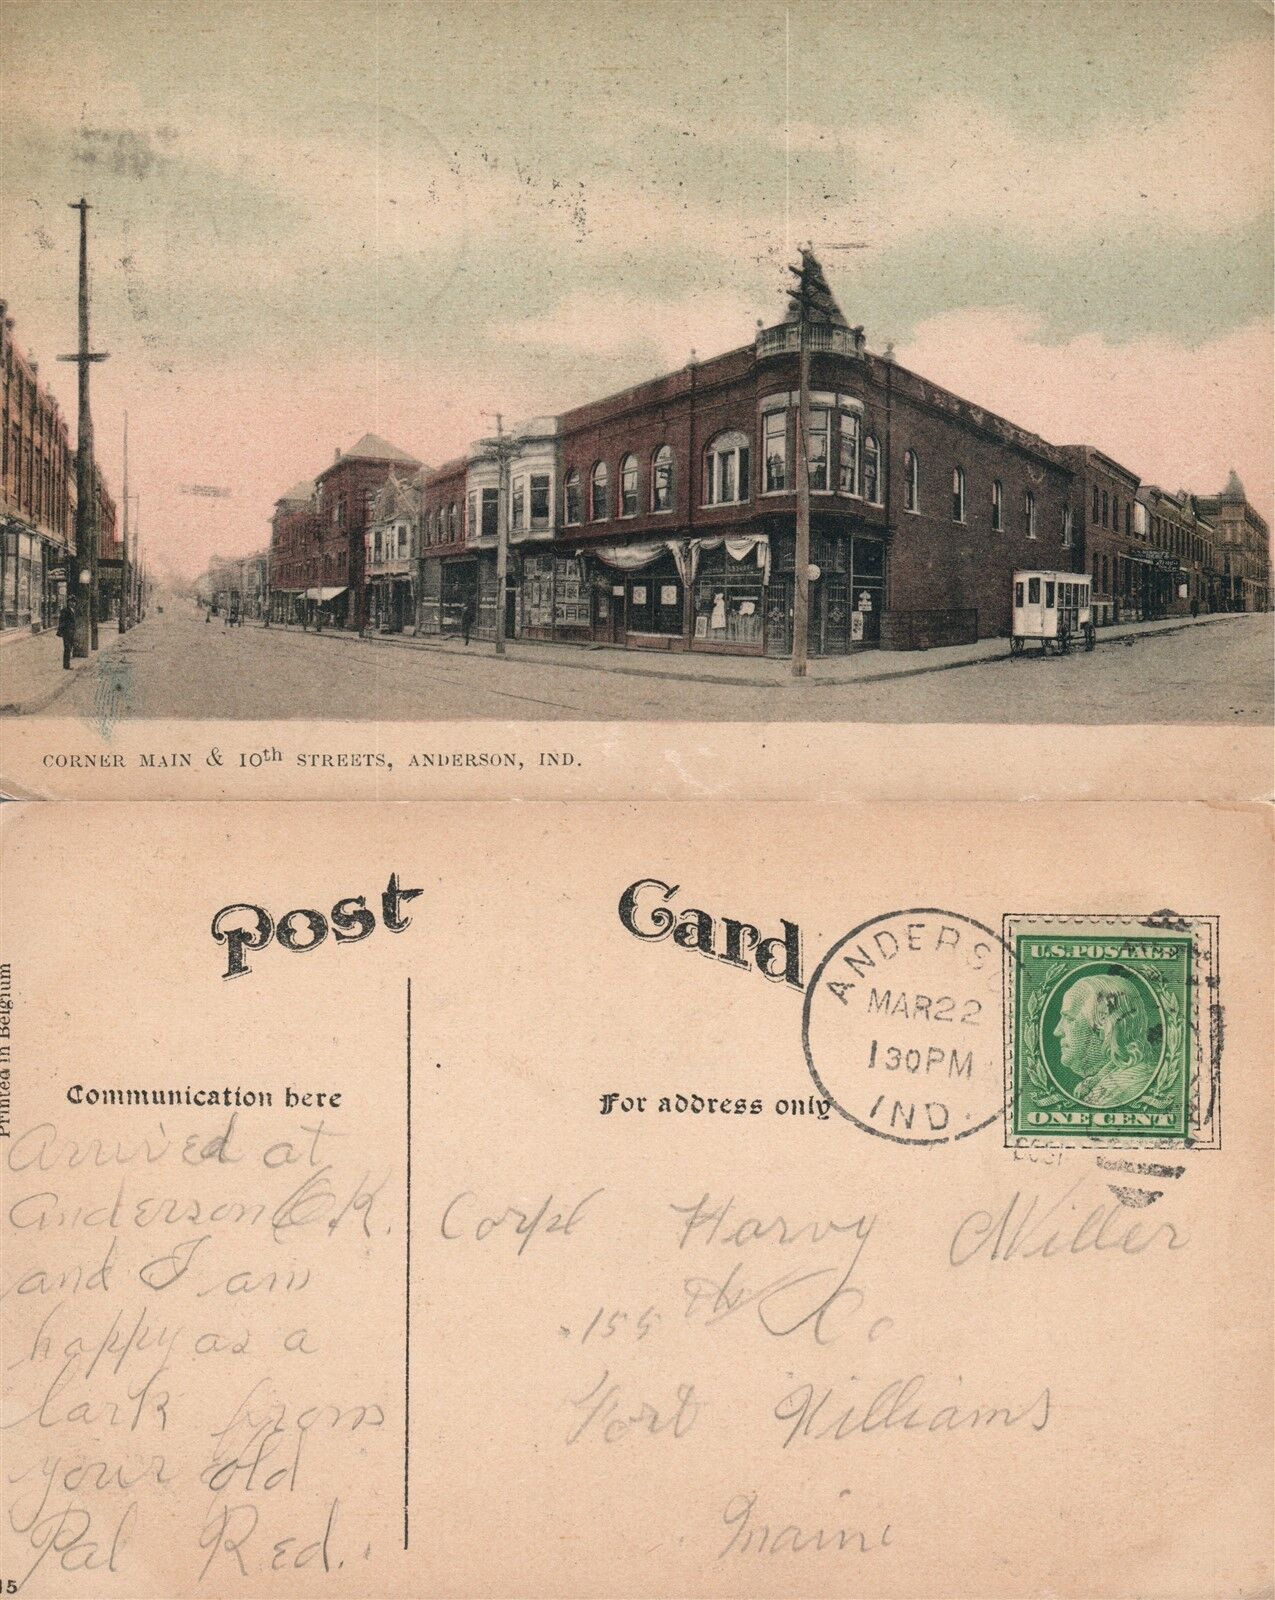 CORNER MAIN & 10th STREETS, ANDERSON, IND.
Post Card
Printed in Belgium
Communication here
For address only
ANDERSO
MAR 22
130PM
IND.
U.S. POSTAGE
ONE CENT
Arrived at
Anderson O.K.
and I am
happy as a
lark from
your old
Pal Red.
Corpl Harvy Miller
155 th Co
Fort Williams
Maine
15